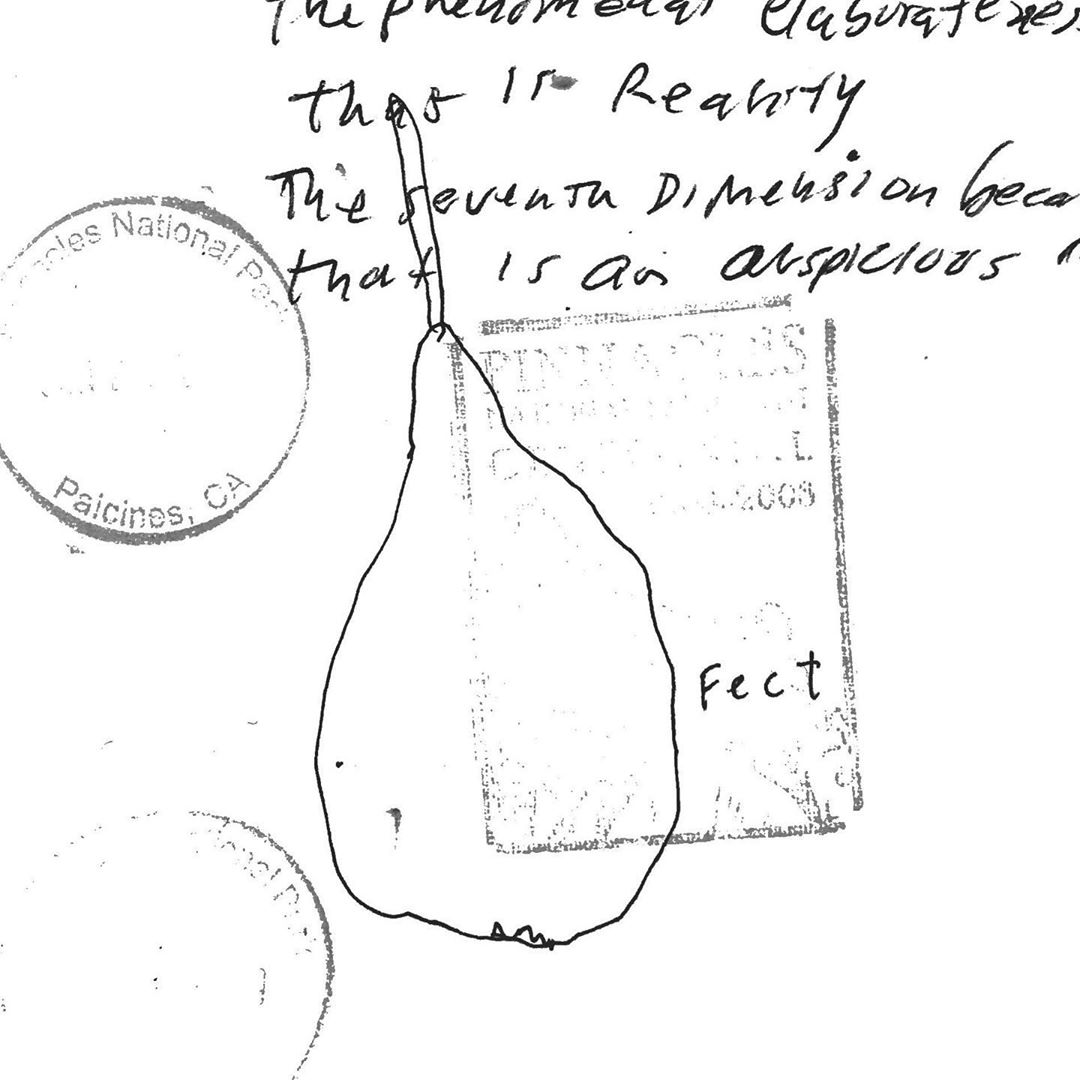 The phenomenal elaborateness
that is Reality
The Seventh Dimension beca
that is an auspicious
cles National Par
Paicines, CA
PINNACLES
2008
Fect
onal Park